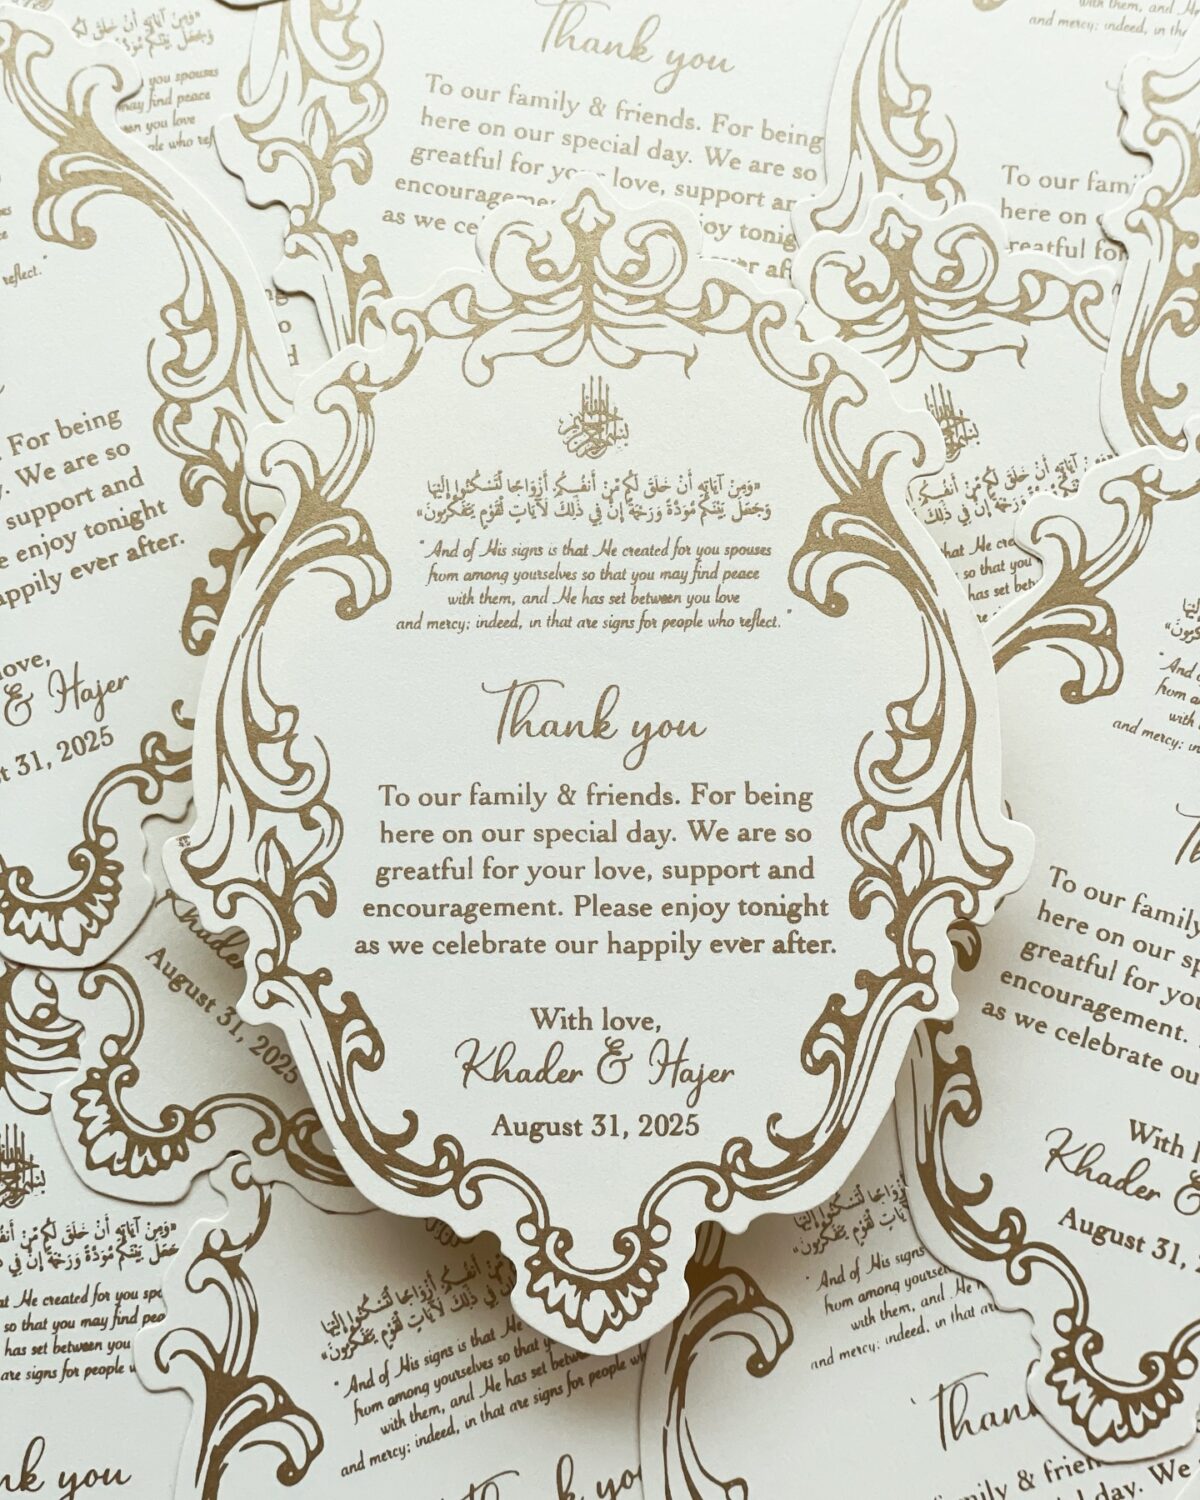 بسم الله الرحمن الرحيم
«وَمِنْ آيَاتِهِ أَنْ خَلَقَ لَكُم مِّنْ أَنفُسِكُمْ أَزْوَاجًا لِّتَسْكُنُوا إِلَيْهَا
وَجَعَلَ بَيْنَكُم مَّوَدَّةً وَرَحْمَةً إِنَّ فِي ذَلِكَ لَآيَاتٍ لِّقَوْمٍ يَتَفَكَّرُونَ»
"And of His signs is that He created for you spouses
from among yourselves so that you may find peace
with them, and He has set between you love
and mercy; indeed, in that are signs for people who reflect."
Thank you
To our family & friends. For being
here on our special day. We are so
greatful for your love, support and
encouragement. Please enjoy tonight
as we celebrate our happily ever after.
With love,
Khader & Hajer
August 31, 2025